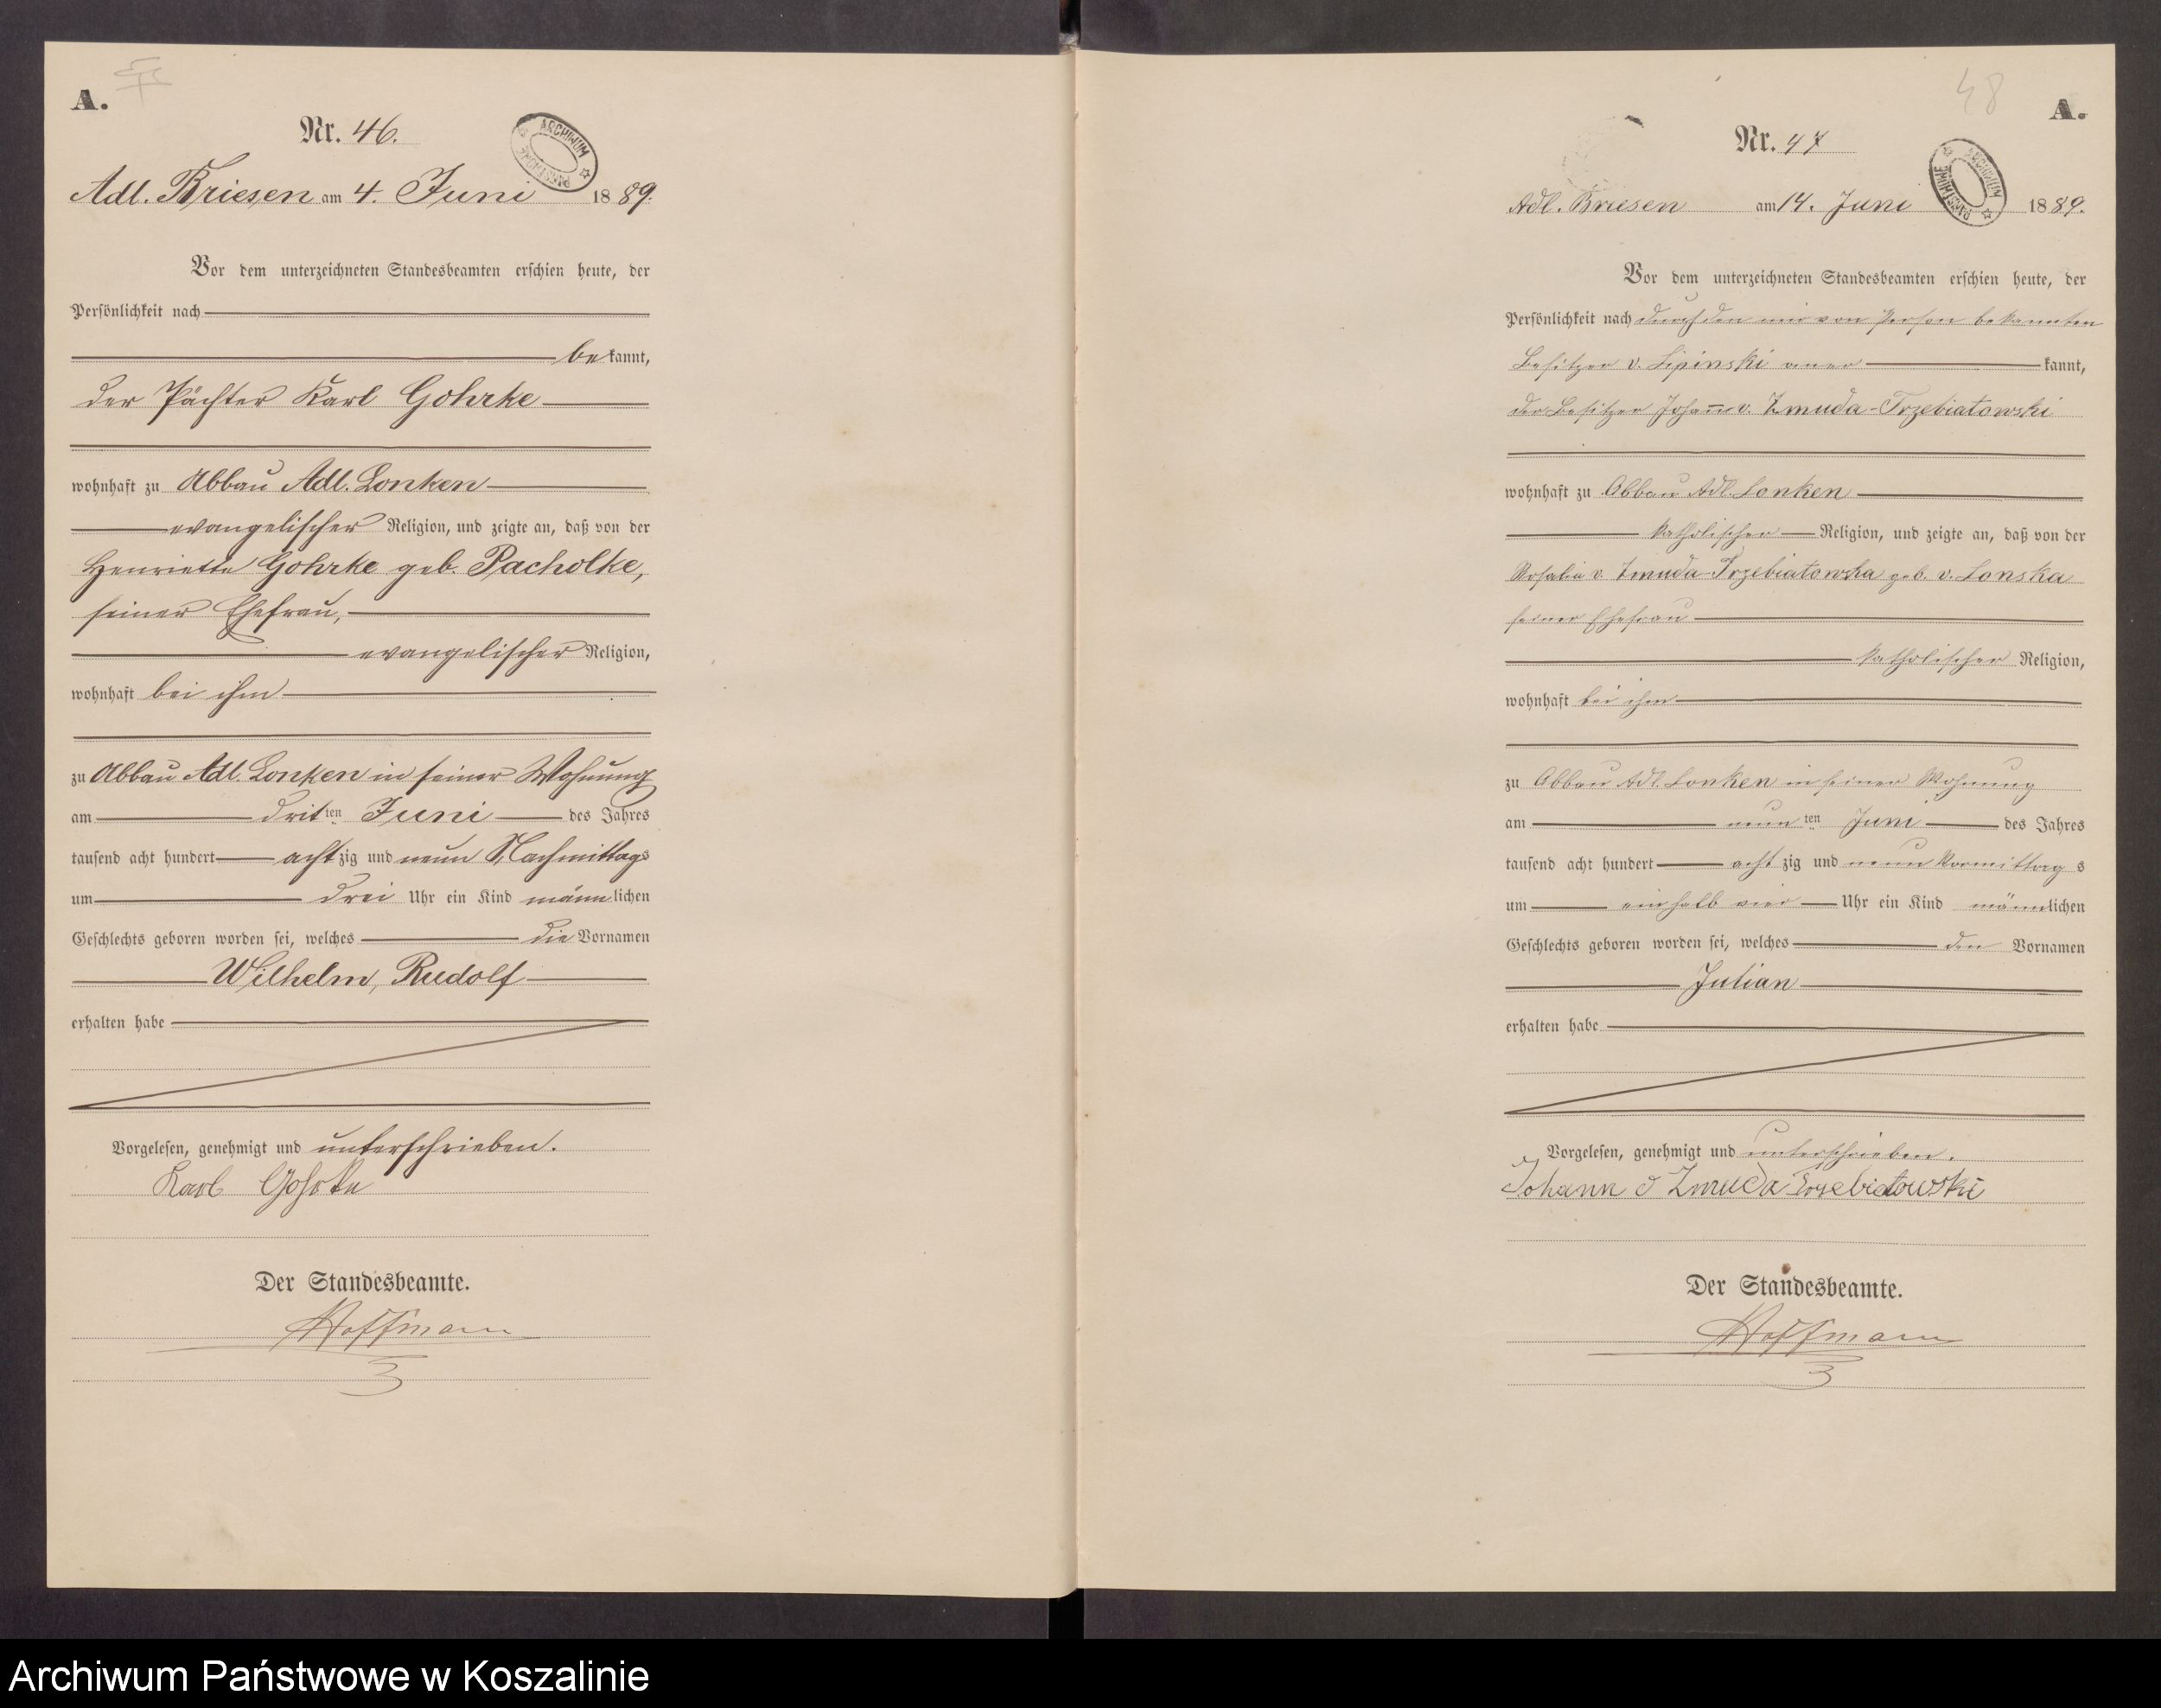 A.
Nr. 46.
ARCHIWUM PAŃSTWOWE
Adl. Briesen am 4. Juni 1889.
Vor dem unterzeichneten Standesbeamten erschien heute, der
Persönlichkeit nach
bekannt,
der Pächter Karl Gohrke
wohnhaft zu Abbau Adl. Lonken
evangelischer Religion, und zeigte an, daß von der
Henriette Gohrke geb. Pacholke,
seiner Ehefrau,
evangelischer Religion,
wohnhaft bei ihm
zu Abbau Adl. Lonken in seiner Wohnung
am dritten Juni des Jahres
tausend acht hundert achtzig und neun Nachmittags
um drei Uhr ein Kind männlichen
Geschlechts geboren worden sei, welches die Vornamen
Wilhelm, Rudolf
erhalten habe
Vorgelesen, genehmigt und unterschrieben.
Karl Gohrke
Der Standesbeamte.
Hoffmann
48
A.
Nr. 47
ARCHIWUM PAŃSTWOWE
Adl. Briesen am 14. Juni 1889.
Vor dem unterzeichneten Standesbeamten erschien heute, der
Persönlichkeit nach durch den mir von Person bekannten
Besitzer v. Lipinski anerkannt,
der Besitzer Johann v. Zmuda-Trzebiatowski
wohnhaft zu Abbau Adl. Lonken
katholischer Religion, und zeigte an, daß von der
Rosalia v. Zmuda-Trzebiatowska geb. v. Lonska
seiner Ehefrau
katholischer Religion,
wohnhaft bei ihm
zu Abbau Adl. Lonken in seiner Wohnung
am neunten Juni des Jahres
tausend acht hundert achtzig und neun Vormittags
um einhalb vier Uhr ein Kind männlichen
Geschlechts geboren worden sei, welches den Vornamen
Julian
erhalten habe
Vorgelesen, genehmigt und unterschrieben.
Johann v Zmuda Trzebiatowski
Der Standesbeamte.
Hoffmann
Archiwum Państwowe w Koszalinie